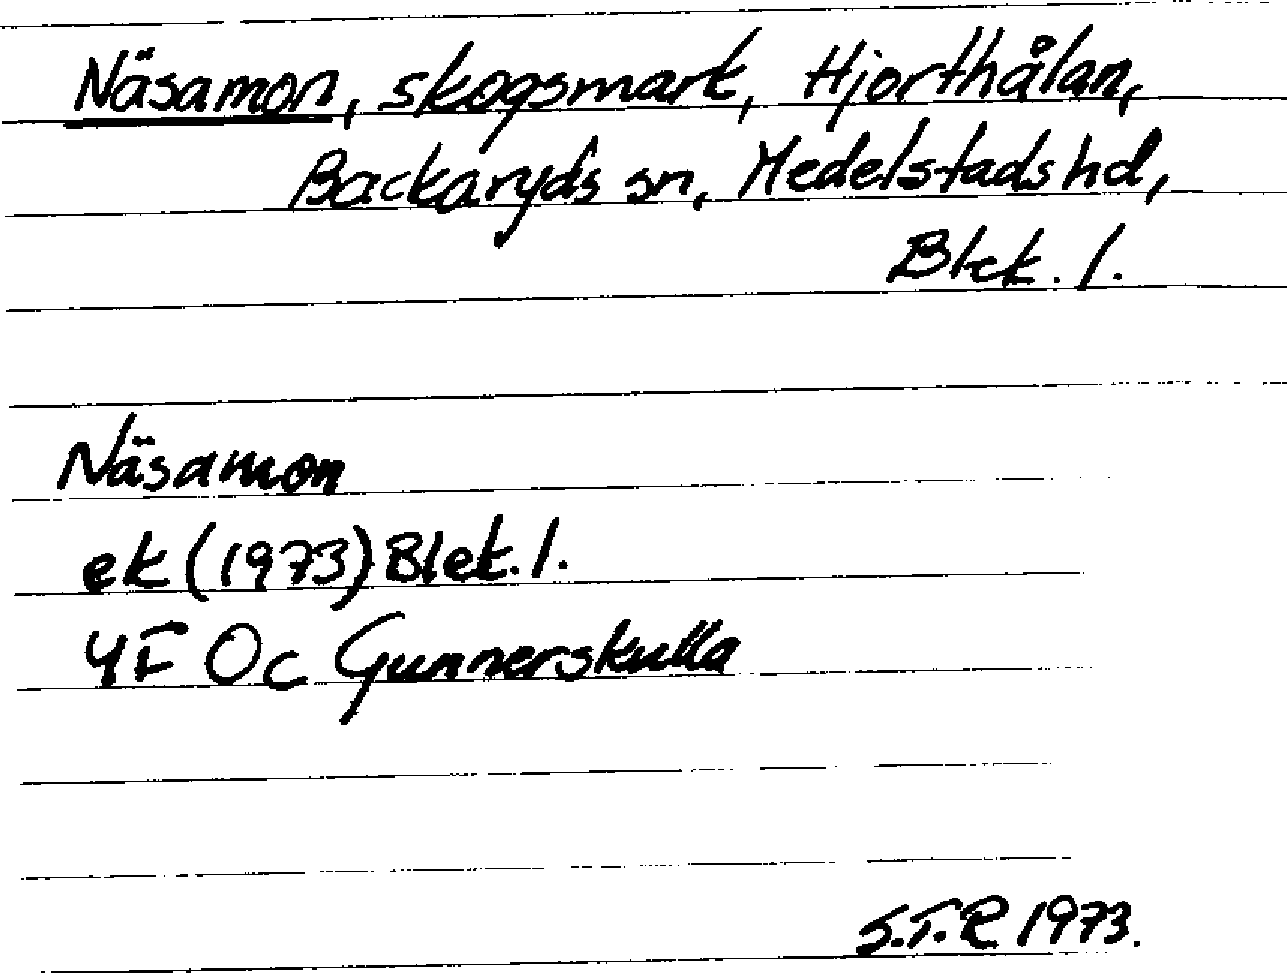 Näsamon, skogsmark, Hjorthålan,
Backaryds sn, Medelstads hd,
Blek. l.
Näsamon
ek (1973) Blek. l.
4F Oc Gunnerskulla
S.T.R 1973.